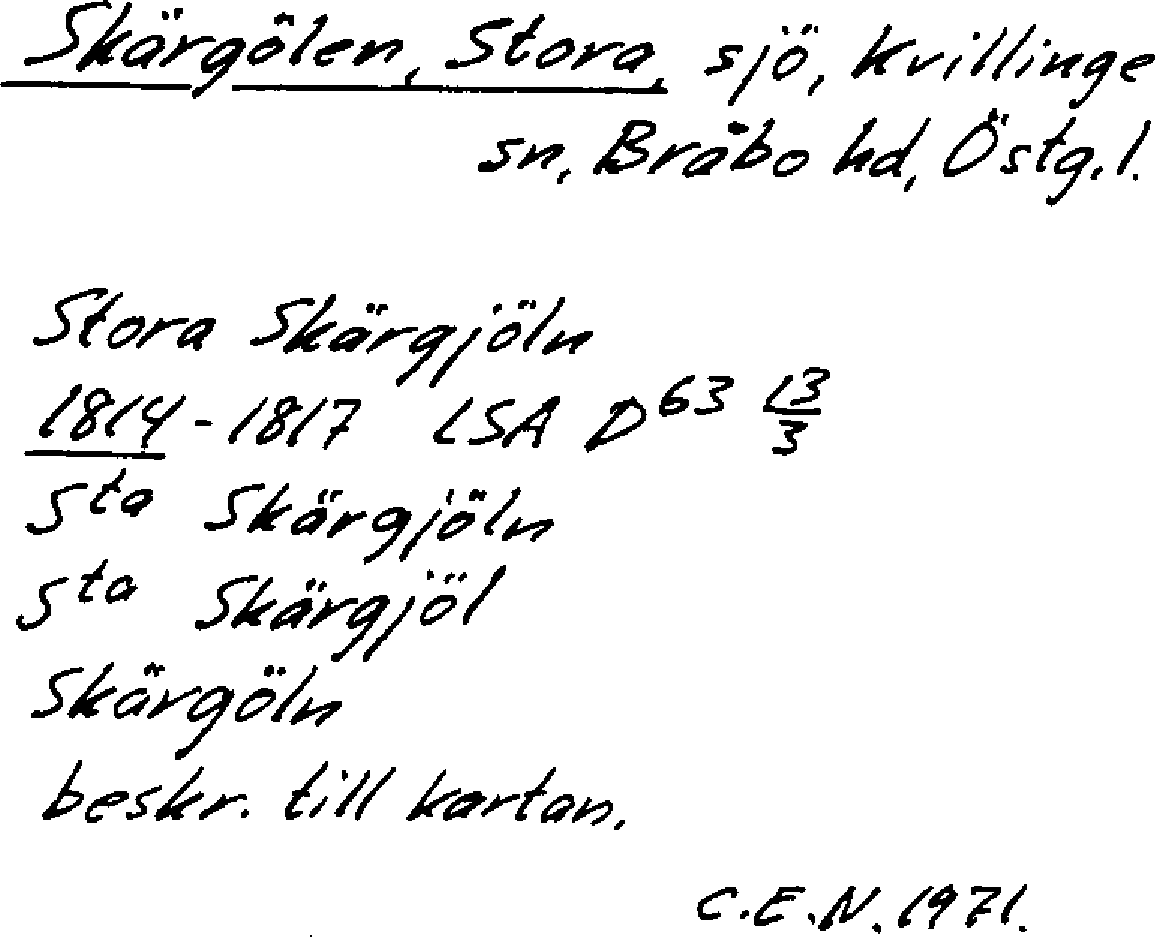 Skärgölen, Stora, sjö, Kvillinge
sn, Bråbo hd, Östg.l.
Stora Skärgjöln
1814-1817 LSA D63 13/3
Sta Skärgjöln
Sta Skärgjöl
Skärgöln
beskr. till kartan.
C.E.N. 1971.